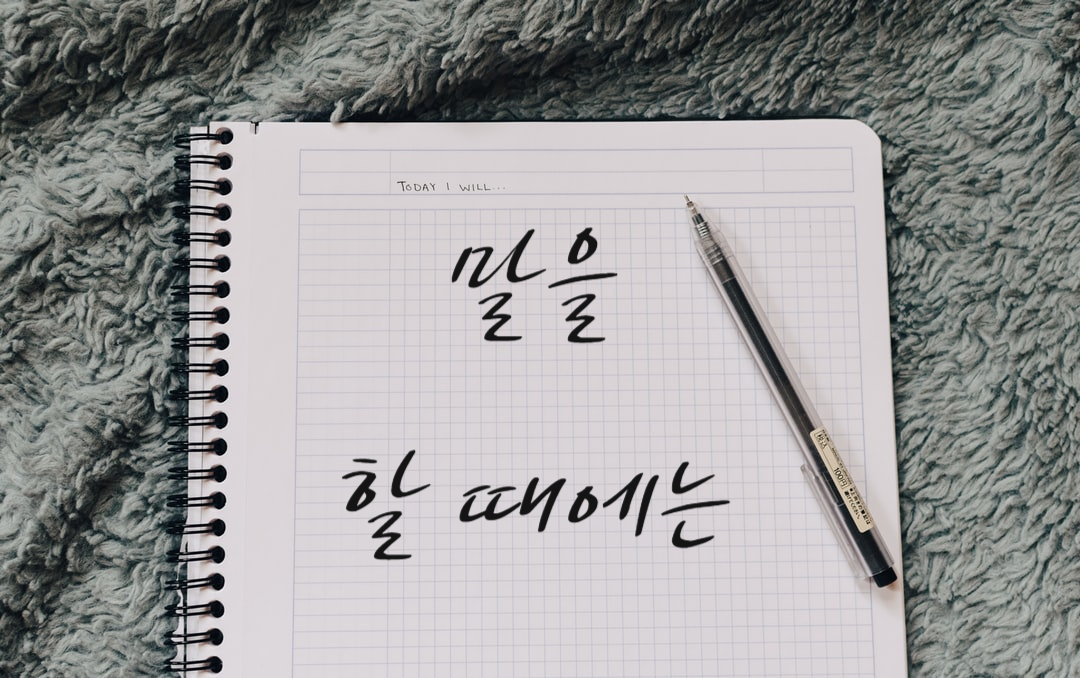 TODAY I WILL...
말을
할 때에는